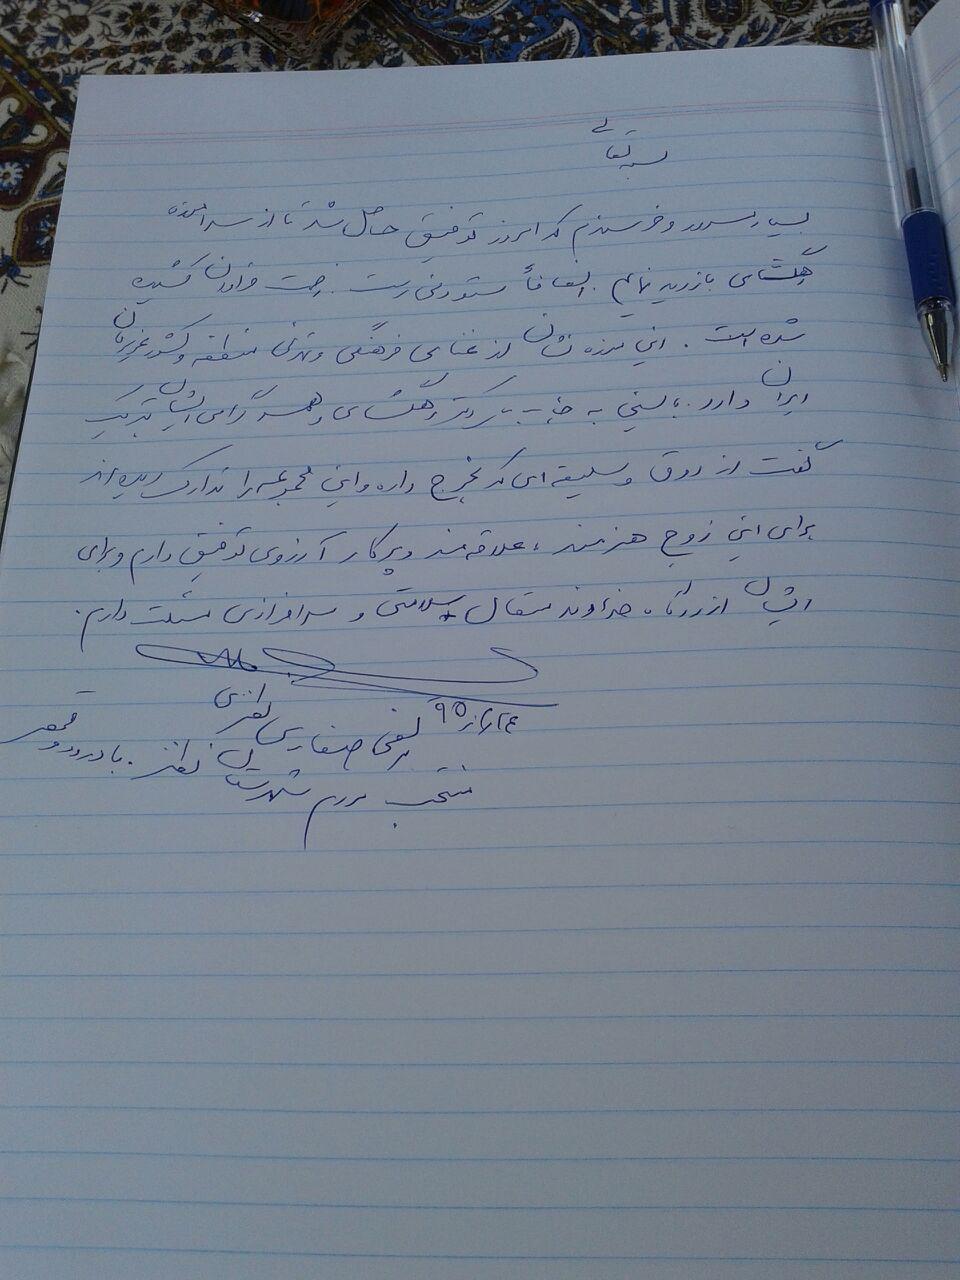 بسمه تعالی
بسیار مسرور و خرسندم که امروز توفیق حاصل شد تا از موزه
گلشای بازدید نمایم. انصافاً ستودنی است. زحمت فراوان کشیده
شده است. این موزه نشان از غنای فرهنگی و تمدنی منطقه و کشور عزیزمان
ایران دارد. بایستی به جناب دکتر گلشای و همسر گرامی ایشان تبریک
گفت از ذوق و سلیقه ای که بخرج داده و این مجموعه را تدارک دیده اند
برای این زوج هنرمند، علاقه مند و پرکار آرزوی توفیق دارم و برای
ایشان از درگاه خداوند متعال سلامتی و سرافرازی مسئلت دارم.
مرتضی صفاری نطنزی
منتخب مردم شهرستان نطنز. بادرود و قمصر